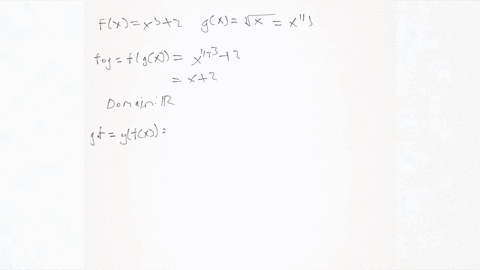 f(x) = x^3 + 2 g(x) = √x = x^1/3
fog = f(g(x)) = x^1/3·3 + 2
= x + 2
Domain: ℝ
gf = g(f(x)) =